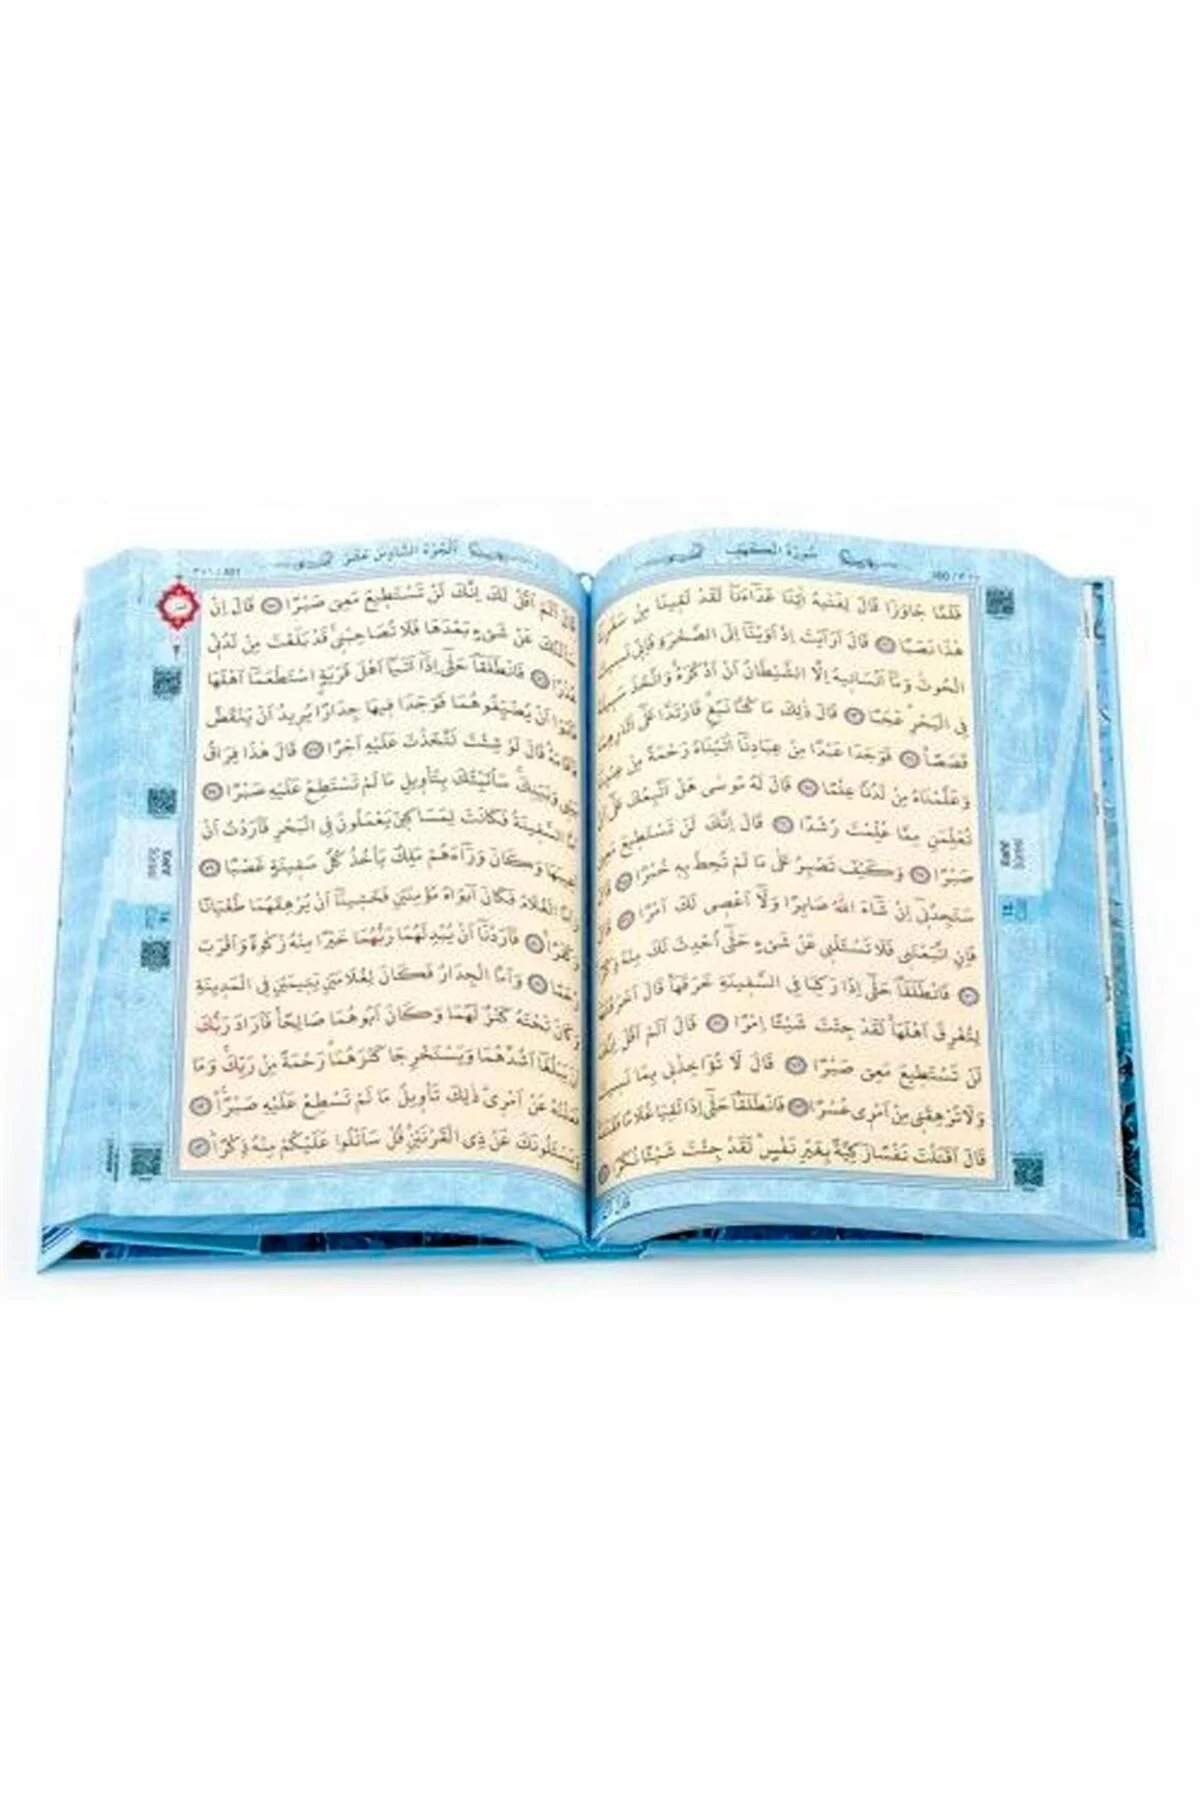 سورة الكهف
فَلَمَّا جَاوَزَا قَالَ لِفَتٰيهُ اٰتِنَا غَدَآءَنَاۘ لَقَدْ لَقٖينَا مِنْ سَفَرِنَا
هٰذَا نَصَبًا قَالَ اَرَاَيْتَ اِذْ اَوَيْنَٓا اِلَى الصَّخْرَةِ فَاِنّٖى نَسٖيتُ
الْحُوتَۘ وَمَٓا اَنْسَانٖيهُ اِلَّا الشَّيْطَانُ اَنْ اَذْكُرَهُۚ وَاتَّخَذَ سَبٖيلَهُ
فِى الْبَحْرِ عَجَبًا قَالَ ذٰلِكَ مَا كُنَّا نَبْغِ فَارْتَدَّا عَلٰٓى اٰثَارِهِمَا
قَصَصًاۙ فَوَجَدَا عَبْدًا مِنْ عِبَادِنَٓا اٰتَيْنَاهُ رَحْمَةً مِنْ عِنْدِنَا
وَعَلَّمْنَاهُ مِنْ لَدُنَّا عِلْمًا قَالَ لَهُ مُوسٰى هَلْ اَتَّبِعُكَ عَلٰٓى اَنْ
تُعَلِّمَنِ مِمَّا عُلِّمْتَ رُشْدًا قَالَ اِنَّكَ لَنْ تَسْتَطٖيعَ مَعِىَ
صَبْرًا وَكَيْفَ تَصْبِرُ عَلٰى مَا لَمْ تُحِطْ بِهٖ خُبْرًا قَالَ
سَتَجِدُنٖٓى اِنْ شَٓاءَ اللّٰهُ صَابِرًا وَلَٓا اَعْصٖى لَكَ اَمْرًا قَالَ
فَاِنِ اتَّبَعْتَنٖى فَلَا تَسْـَٔلْنٖى عَنْ شَىْءٍ حَتّٰٓى اُحْدِثَ لَكَ مِنْهُ ذِكْرًا
فَانْطَلَقَا حَتّٰٓى اِذَا رَكِبَا فِى السَّفٖينَةِ خَرَقَهَا قَالَ اَخَرَقْتَهَا
لِتُغْرِقَ اَهْلَهَا لَقَدْ جِئْتَ شَيْـًٔا اِمْرًا قَالَ اَلَمْ اَقُلْ اِنَّكَ
لَنْ تَسْتَطٖيعَ مَعِىَ صَبْرًا قَالَ لَا تُؤَاخِذْنٖى بِمَا نَسٖيتُ
وَلَا تُرْهِقْنٖى مِنْ اَمْرٖى عُسْرًا فَانْطَلَقَا حَتّٰٓى اِذَا لَقِيَا غُلَامًا فَقَتَلَهُ
قَالَ اَقَتَلْتَ نَفْسًا زَكِيَّةً بِغَيْرِ نَفْسٍ لَقَدْ جِئْتَ شَيْـًٔا نُكْرًا
الجزء السادس عشر
قَالَ اَلَمْ اَقُلْ لَكَ اِنَّكَ لَنْ تَسْتَطٖيعَ مَعِىَ صَبْرًا قَالَ اِنْ
سَاَلْتُكَ عَنْ شَىْءٍ بَعْدَهَا فَلَا تُصَاحِبْنٖى قَدْ بَلَغْتَ مِنْ لَدُنّٖى
عُذْرًا فَانْطَلَقَا حَتّٰٓى اِذَٓا اَتَيَٓا اَهْلَ قَرْيَةٍ اسْتَطْعَمَٓا اَهْلَهَا
فَاَبَوْا اَنْ يُضَيِّفُوهُمَا فَوَجَدَا فٖيهَا جِدَارًا يُرٖيدُ اَنْ يَنْقَضَّ
فَاَقَامَهُ قَالَ لَوْ شِئْتَ لَتَّخَذْتَ عَلَيْهِ اَجْرًا قَالَ هٰذَا فِرَاقُ
بَيْنٖى وَبَيْنِكَ سَاُنَبِّئُكَ بِتَأْوٖيلِ مَا لَمْ تَسْتَطِعْ عَلَيْهِ صَبْرًا
اَمَّا السَّفٖينَةُ فَكَانَتْ لِمَسَاكٖينَ يَعْمَلُونَ فِى الْبَحْرِ فَاَرَدْتُ اَنْ
اَعٖيبَهَا وَكَانَ وَرَٓاءَهُمْ مَلِكٌ يَأْخُذُ كُلَّ سَفٖينَةٍ غَصْبًا
وَاَمَّا الْغُلَامُ فَكَانَ اَبَوَاهُ مُؤْمِنَيْنِ فَخَشٖينَٓا اَنْ يُرْهِقَهُمَا طُغْيَانًا
وَكُفْرًا فَاَرَدْنَٓا اَنْ يُبْدِلَهُمَا رَبُّهُمَا خَيْرًا مِنْهُ زَكٰوةً وَاَقْرَبَ
رُحْمًا وَاَمَّا الْجِدَارُ فَكَانَ لِغُلَامَيْنِ يَتٖيمَيْنِ فِى الْمَدٖينَةِ
وَكَانَ تَحْتَهُ كَنْزٌ لَهُمَا وَكَانَ اَبُوهُمَا صَالِحًا فَاَرَادَ رَبُّكَ
اَنْ يَبْلُغَٓا اَشُدَّهُمَا وَيَسْتَخْرِجَا كَنْزَهُمَا رَحْمَةً مِنْ رَبِّكَ وَمَا
فَعَلْتُهُ عَنْ اَمْرٖى ذٰلِكَ تَأْوٖيلُ مَا لَمْ تَسْطِعْ عَلَيْهِ صَبْرًا
وَيَسْـَٔلُونَكَ عَنْ ذِى الْقَرْنَيْنِ قُلْ سَاَتْلُوا عَلَيْكُمْ مِنْهُ ذِكْرًا